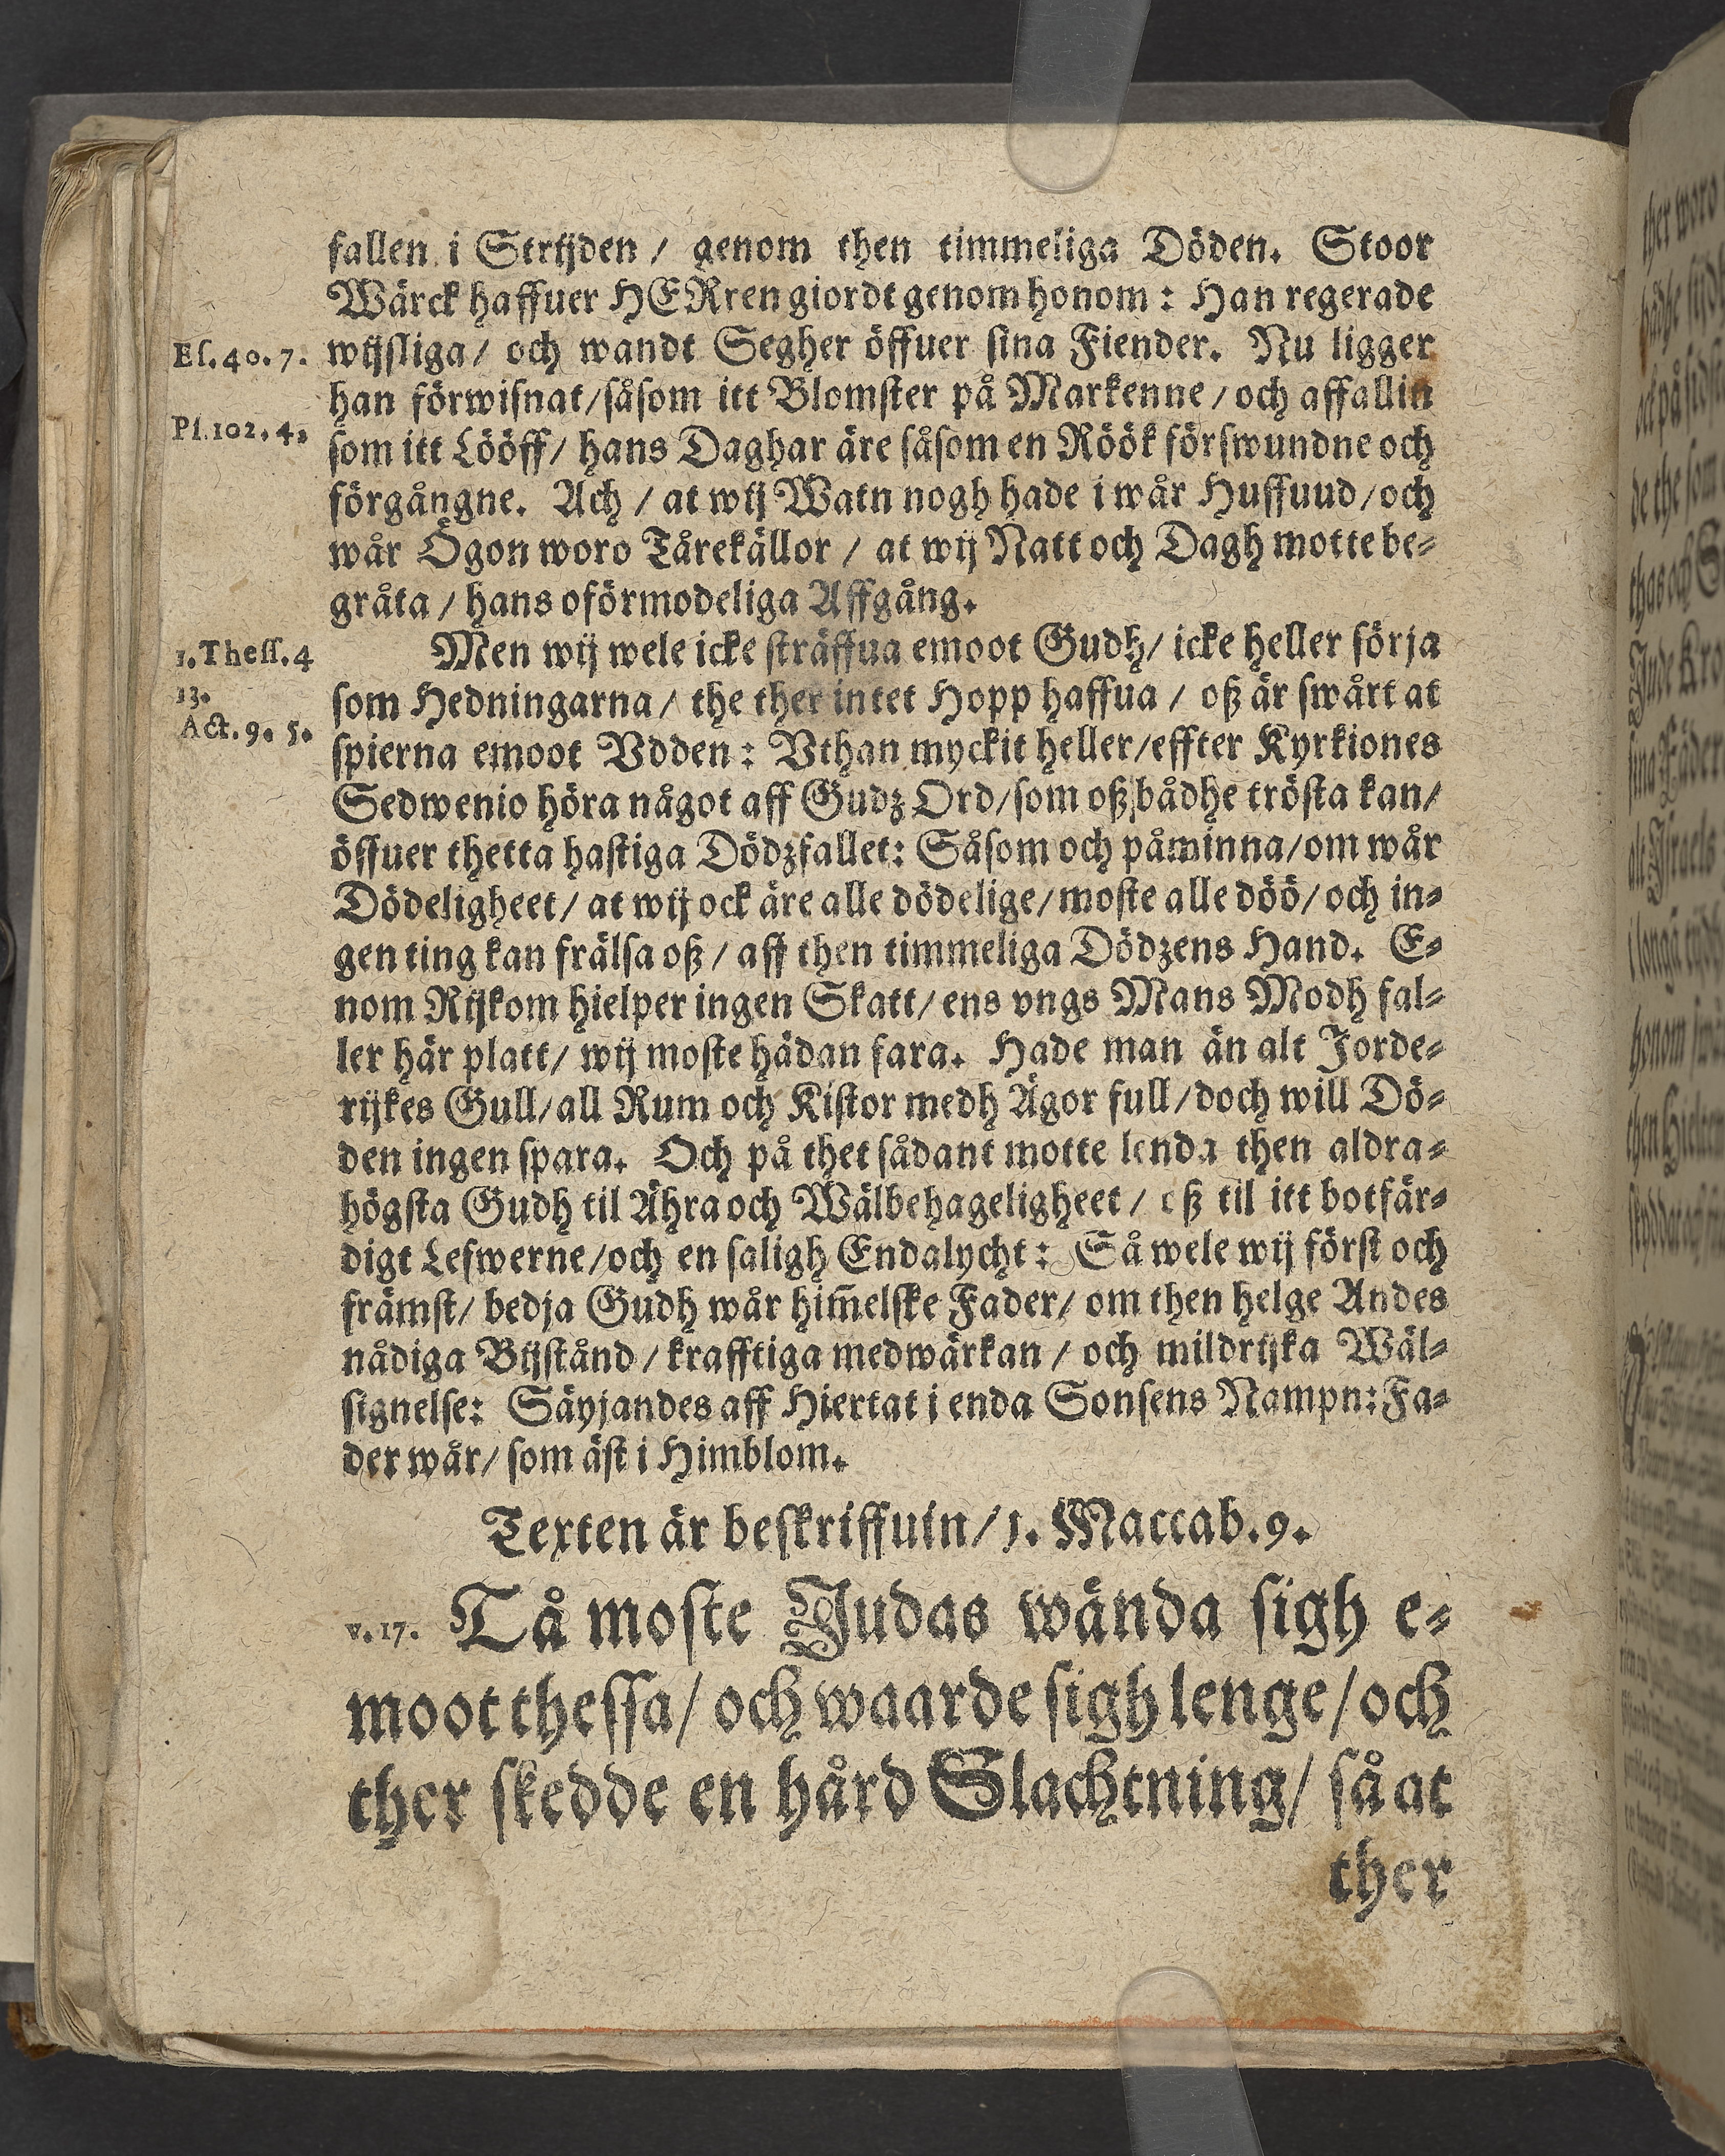 fallen i Strijden / genom then timmeliga Döden. Stoor
Wärck haffuer HERren giordt genom honom : Han regerade
Eſ. 40. 7.
wijſliga / och wandt Segher öffuer ſina Fiender. Nu ligger
han förwiſnat / ſåſom itt Blomſter på Markenne / och affallin
Pſ. 102. 4.
ſom itt Lööff / hans Daghar äre ſåſom en Röök förſwundne och
förgångne. Ach / at wij Watn nogh hade i wår Huffuud / och
wår Ögon woro Tårekällor / at wij Natt och Dagh motte be⸗
gråta / hans oförmodeliga Affgång.
1. Theſſ. 4
13.
Men wij wele icke ſträffua emoot Gudh / icke heller ſörja
ſom Hedningarna / the ther intet Hopp haffua / oß är ſwårt at
Act. 9. 5.
ſpierna emoot Vdden : Vthan myckit heller / effter Kyrkiones
Sedwenio höra något aff Gudz Ord / ſom oß bådhe tröſta kan /
öffuer thetta haſtiga Dödzfallet : Såſom och påminna / om wår
Dödeligheet / at wij ock äre alle dödelige / moſte alle döö / och in⸗
gen ting kan frälſa oß / aff then timmeliga Dödzens Hand. E⸗
nom Rijkom hielper ingen Skatt / ens vngs Mans Modh fal⸗
ler här platt / wij moſte hädan fara. Hade man än alt Jorde⸗
rijkes Gull / all Rum och Kiſtor medh Ägor full / doch will Dö⸗
den ingen ſpara. Och på thet ſådant motte lenda then aldra⸗
högſta Gudh til Ähra och Wälbehageligheet / oß til itt botfär⸗
digt Lefwerne / och en ſaligh Endalycht : Så wele wij förſt och
främſt / bedja Gudh wår him̃elſke Fader / om then helge Andes
nådiga Bijſtånd / krafftiga medwärkan / och mildrijka Wäl⸗
ſignelſe : Säyjandes aff Hiertat i enda Sonſens Nampn : Fa⸗
der wår / ſom äſt i Himblom.
Texten är beſkriffuin / 1. Maccab. 9.
v. 17. Tå moſte Judas wända ſigh e⸗
moot theſſa / och waarde ſigh lenge / och
ther ſkedde en hård Slachtning / ſå at
ther